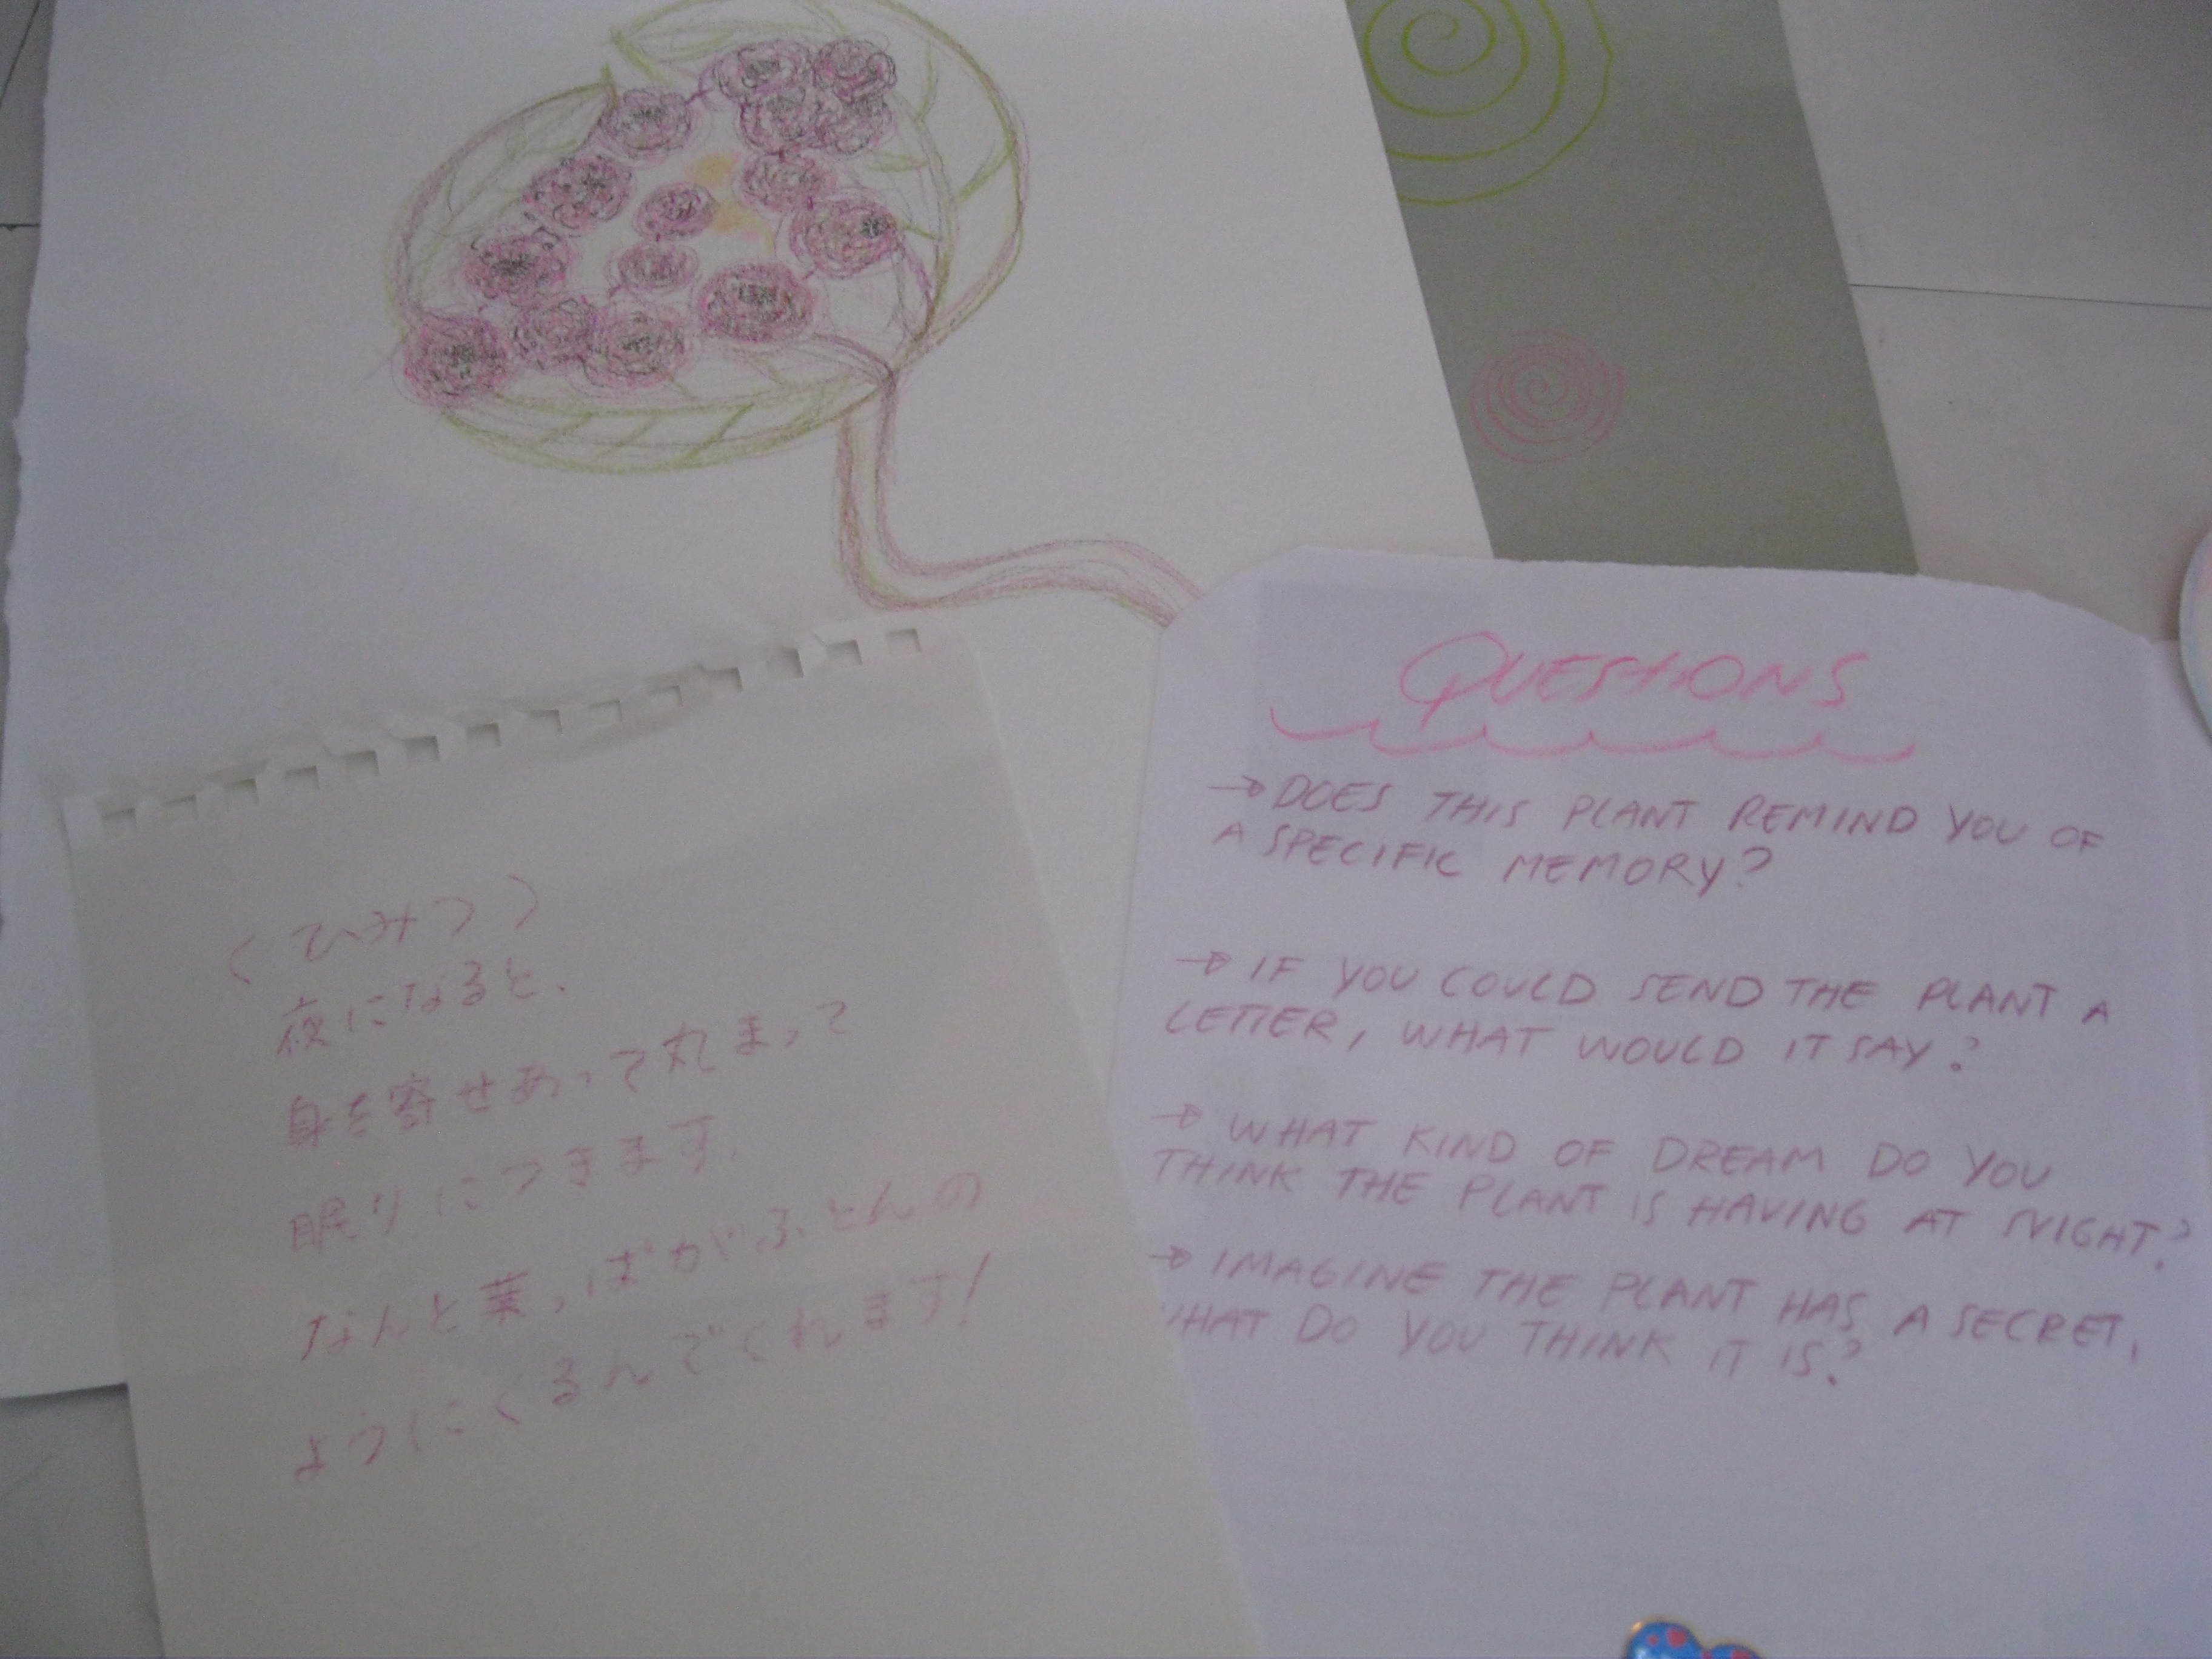 (ひみつ)
夜になると、
身を寄せあって丸まって
眠りにつきます。
なんと葉っぱがふとんの
ようにくるんでくれます!
QUESTIONS
→ DOES THIS PLANT REMIND YOU OF
A SPECIFIC MEMORY?
→ IF YOU COULD SEND THE PLANT A
LETTER, WHAT WOULD IT SAY?
→ WHAT KIND OF DREAM DO YOU
THINK THE PLANT IS HAVING AT NIGHT?
→ IMAGINE THE PLANT HAS A SECRET,
WHAT DO YOU THINK IT IS?